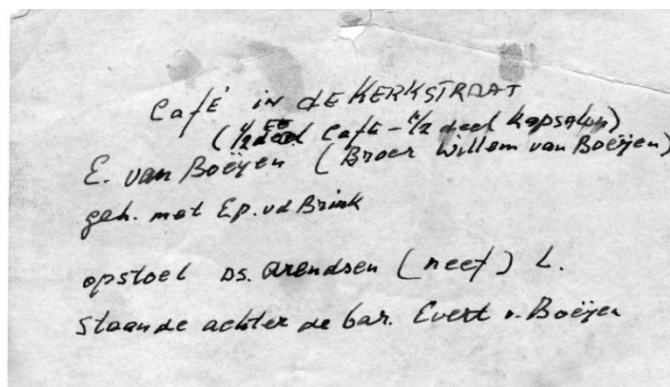 Café in de KERKSTRAAT
(1/2 deel Café - 1/2 deel Kapsalon)
E. van Boëyen (Broer Willem van Boëyen)
geh. met Ep. vd Brink
opstoel Ds. Arendsen (neef) L.
Staande achter de bar. Evert v. Boëyen